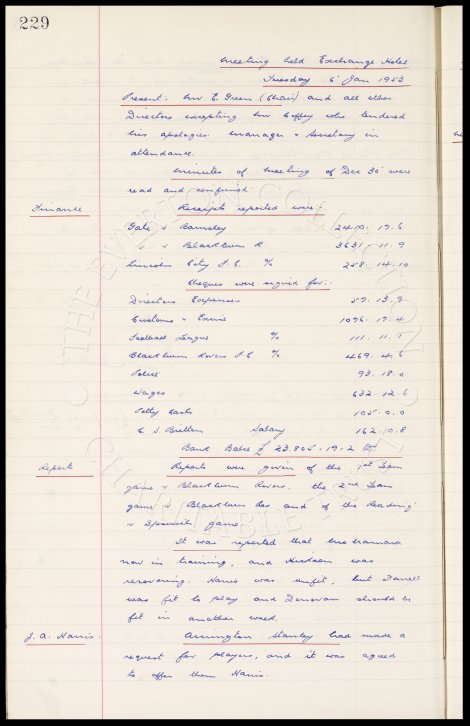 229
Meeting held Exchange Hotel
Tuesday 6 Jan 1953
Present: Mr E. Green (Chair) and all other
Directors excepting Mr Coffey who tendered
his apologies. Manager & Secretary in
attendance.
Minutes of Meeting of Dec 30 were
read and confirmed.
Finance
Receipts reported were:-
Gate v Barnsley 2410. 17. 6
" v Blackburn R 3631. 11. 9
Lincoln City F.C. % 258. 14. 10
Cheques were signed for:-
Directors Expenses 57. 13. 9
Customs & Excise 1096. 17. 4
Football League % 111. 11.
Blackburn Rovers F.C % 469. 4. 6
Police 93. 18. 0
Wages 632. 12. 6
Petty Cash 105. 0. 0
Salary 162. 0. 8
Bank Balce £ 23.805. 19. 2 Dr
Reports
Reports were given of the 1st Team
game v Blackburn Rovers, the 2nd Team
game v Blackburn Res and of the Reading
v Ipswich game.
It was reported that
now in training, and Hickson was
recovering. Harris was unfit, but Farrell
was fit to play and Donovan should be
fit in another week.
J. A. Harris.
Accrington Stanley had made a
request for players, and it was agreed
to offer them Harris.
THE EVERTON COLLECTION
CHARITABLE TRUST